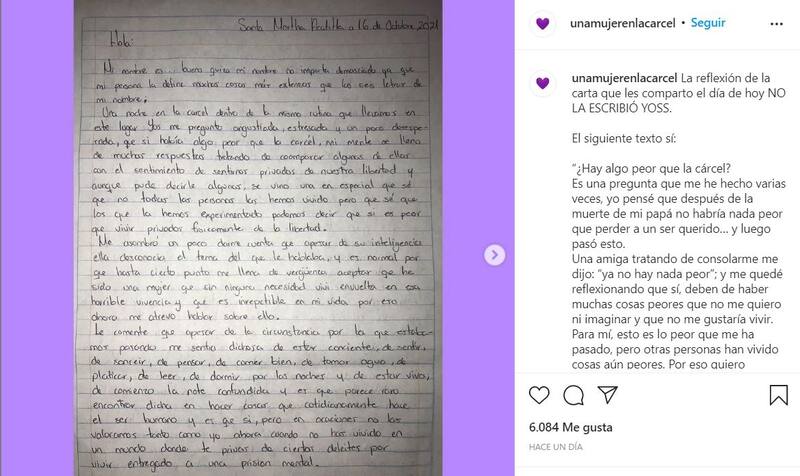 Santa Martha Acatitla a 16 de Octubre 2021
Hola:
Mi nombre es... bueno quiza mi nombre no importa demasiado ya que
mi persona la define muchas cosas más extensas que las seis letras de
mi nombre.
Una noche en la carcel dentro de la misma rutina que llevamos en
este lugar Yos me pregunto angustiada, estresada y un poco desespe-
rada, que si había algo peor que la carcél, mi mente se lleno
de muchas respuestas tratando de coomparar algunas de ellas
con el sentimiento de sentirnos privadas de nuestra libertad y
aunque pude decirle algunas, se vino una en especial que sé
que no todas las personas las hemos vivido pero que sé que
los que la hemos experimentado podemos decir que si es peor
que vivir privados fisicamente de la libertad.
Me asombró un poco darme cuenta que apesar de su inteligencia
ella desconocia el tema del que le hablaba, y es normal por
que hasta cierto punto me llena de vergüenza aceptar que he
sido una mujer que sin ninguna necesidad vivi envuelta en esa
horrible vivencia y que es irrepetible en mi vida por eso
ahora me atrevo hablar sobre ello.
Le comente que apesar de la circunstancia por la que estaba-
mos pasando me sentia dichosa de estar conciente, de sentir,
de sonreir, de pensar, de comer bien, de tomar agua, de
platicar, de leer, de dormir por las noches y de estar viva,
de comienzo la note confundida y es que parece raro
encontrar dicha en hacer cosas que cotidianamente hace
el ser humano y es que si, pero en ocaciones no las
valoramos tanto como yo ahora cuando no has vivido en
un mundo donde te privas de ciertos deleites por
vivir entregado a una prision mental.
unamujerenlacarcel • Seguir
unamujerenlacarcel La reflexión de la
carta que les comparto el día de hoy NO
LA ESCRIBIÓ YOSS.
El siguiente texto sí:
"¿Hay algo peor que la cárcel?
Es una pregunta que me he hecho varias
veces, yo pensé que después de la
muerte de mi papá no habría nada peor
que perder a un ser querido… y luego
pasó esto.
Una amiga tratando de consolarme me
dijo: "ya no hay nada peor"; y me quedé
reflexionando que sí, deben de haber
muchas cosas peores que no me quiero
ni imaginar y que no me gustaría vivir.
Para mí, esto es lo peor que me ha
pasado, pero otras personas han vivido
cosas aún peores. Por eso quiero
6.084 Me gusta
HACE UN DÍA